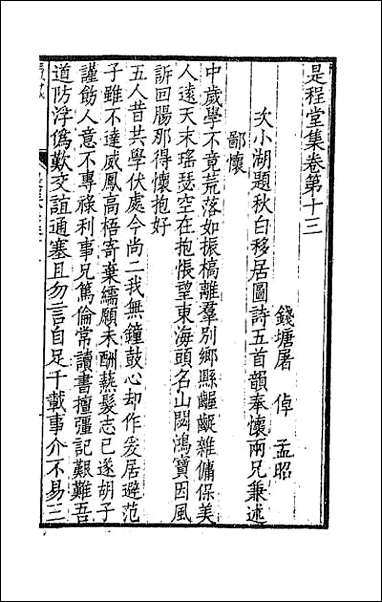 是程堂集卷第十三
錢塘屠　倬　孟昭
次小湖題秋白移居圖詩五首韻奉懷兩兄兼述
鄙懷
中歲學不竟荒落如振槁離羣別鄉縣齷齪雜傭保美
人遠天末瑤瑟空在抱悵望東海頭名山閟鴻寶因風
訴回腸那得懷抱好
五人昔共學伏處今尚二我無鐘鼓心却作爰居避范
子雖不達威鳳高梧寄棄繻願未酬爇髮志已遂胡子
謹飭人意不專祿利事兄篤倫常讀書擅彊記艱難吾
道防浮偽歎交誼通塞且勿言自足千載事介不易三